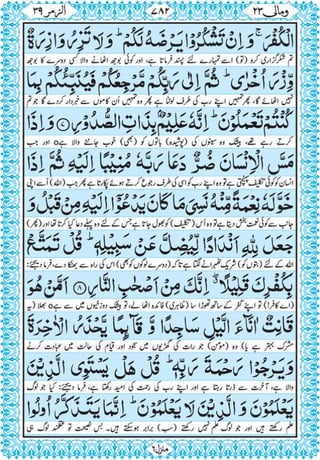 ومالی ٢٣ ٧٨٢ الزمر ٣٩
الْكُفْرَ ۚ وَ اِنْ تَشْكُرُوْا يَرْضَهُ لَكُمْ ؕ وَ لَا تَزِرُ وَازِرَةٌ
تم شکرگزاری کرو (تو) اسے تمہارے لئے پسند فرماتا ہے، اور کوئی بوجھ اٹھانے والا کسی دوسرے کے بوجھ کو
وِّزْرَ اُخْرٰى ؕ ثُمَّ اِلٰى رَبِّكُمْ مَّرْجِعُكُمْ فَيُنَبِّئُكُمْ بِمَا
نہیں اٹھائے گا، پھر تمہیں اپنے رب کی طرف لوٹنا ہے پھر وہ تمہیں اُن کاموں سے خبردار کر دے گا جو تم
كُنْتُمْ تَعْمَلُوْنَ ؕ اِنَّهٗ عَلِيْمٌۢ بِذَاتِ الصُّدُوْرِ ٧ وَ اِذَا
کرتے رہے تھے، بیشک وہ سینوں کی (پوشیدہ) باتوں کو (بھی) خوب جاننے والا ہے اور جب
مَسَّ الْاِنْسَانَ ضُرٌّ دَعَا رَبَّهٗ مُنِيْبًا اِلَيْهِ ثُمَّ اِذَا
انسان کو کوئی تکلیف پہنچتی ہے تو وہ اپنے رب کو اسی کی طرف رجوع کرتے ہوئے پکارتا ہے، پھر جب (اللہ) اُسے اپنی
خَوَّلَهٗ نِعْمَةً مِّنْهُ نَسِيَ مَا كَانَ يَدْعُوْۤا اِلَيْهِ مِنْ قَبْلُ وَ
جانب سے کوئی نعمت بخش دیتا ہے تو وہ اُس (تکلیف) کو بھول جاتا ہے جس کے لئے وہ پہلے دعا کیا کرتا تھا اور (پھر)
جَعَلَ لِلّٰهِ اَنْدَادًا لِّيُضِلَّ عَنْ سَبِيْلِهٖ ؕ قُلْ تَمَتَّعْ
اللہ کے لئے (بتوں کو) شریک ٹھہرانے لگتا ہے تاکہ (دوسرے لوگوں کو بھی) اس کی راہ سے بھٹکا دے، فرما دیجئے:
بِكُفْرِكَ قَلِيْلًا ۖ اِنَّكَ مِنْ اَصْحٰبِ النَّارِ ٨ اَمَّنْ هُوَ
(اے کافر!) تو اپنے کفر کے ساتھ تھوڑا سا (ظاہری) فائدہ اٹھا لے، تو بیشک دوزخیوں میں سے ہے بھلا (یہ
قَانِتٌ اٰنَآءَ الَّيْلِ سَاجِدًا وَّ قَآئِمًا يَّحْذَرُ الْاٰخِرَةَ
مشرک بہتر ہے یا) وہ (مومن) جو رات کی گھڑیوں میں سجود اور قیام کی حالت میں عبادت کرنے
وَ يَرْجُوْا رَحْمَةَ رَبِّهٖ ؕ قُلْ هَلْ يَسْتَوِى الَّذِيْنَ
والا ہے، آخرت سے ڈرتا رہتا ہے اور اپنے رب کی رحمت کی امید رکھتا ہے، فرما دیجئے: کیا جو لوگ
يَعْلَمُوْنَ وَ الَّذِيْنَ لَا يَعْلَمُوْنَ ؕ اِنَّمَا يَتَذَكَّرُ اُولُوا
علم رکھتے ہیں اور جو لوگ علم نہیں رکھتے (سب) برابر ہو سکتے ہیں؟ بس نصیحت تو عقلمند لوگ ہی
منزل ٦